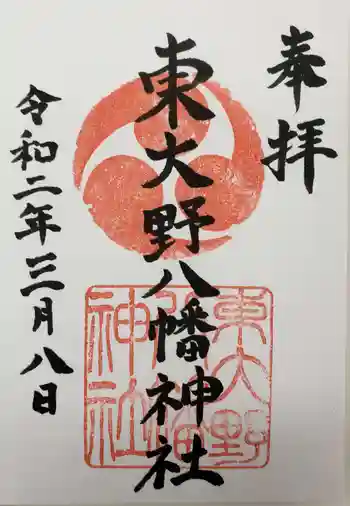 奉拝
東大野八幡神社
令和二年三月八日
東大野
八幡
神社